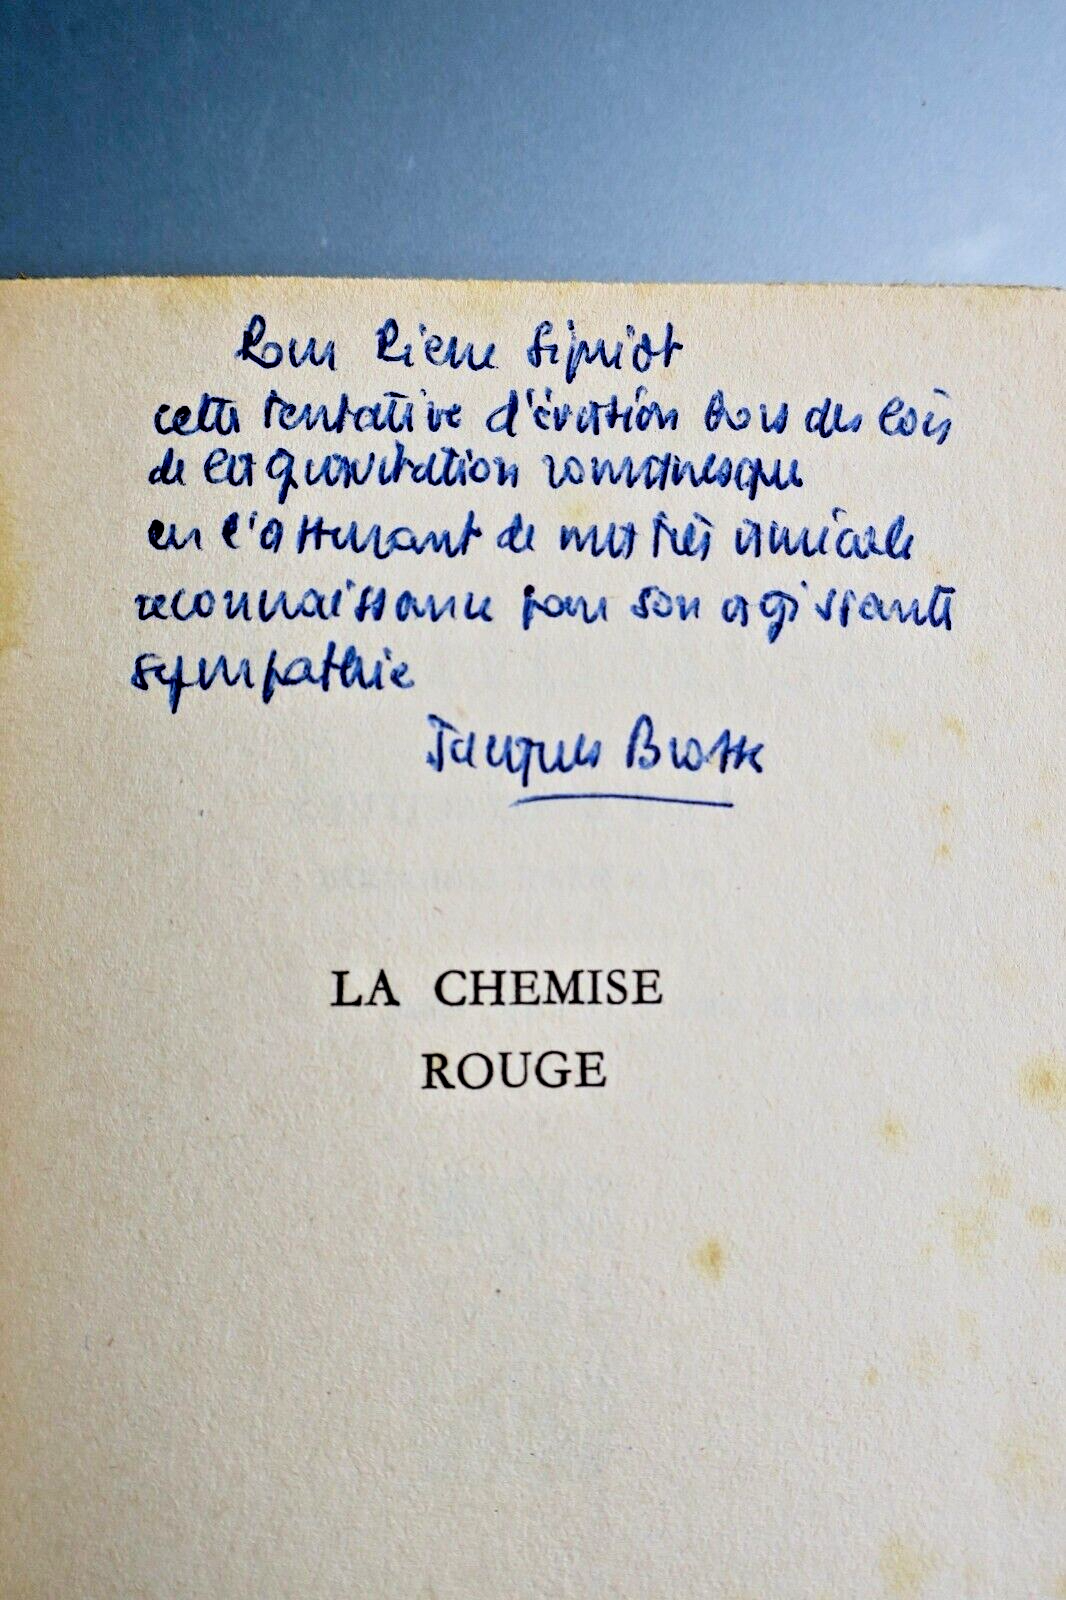 Pour Pierre Sipriot
cette tentative d'évasion hors des lois
de la gravitation romanesque
en l'assurant de ma très amicale
reconnaissance pour son agissante
sympathie
Jacques Brosse
LA CHEMISE
ROUGE